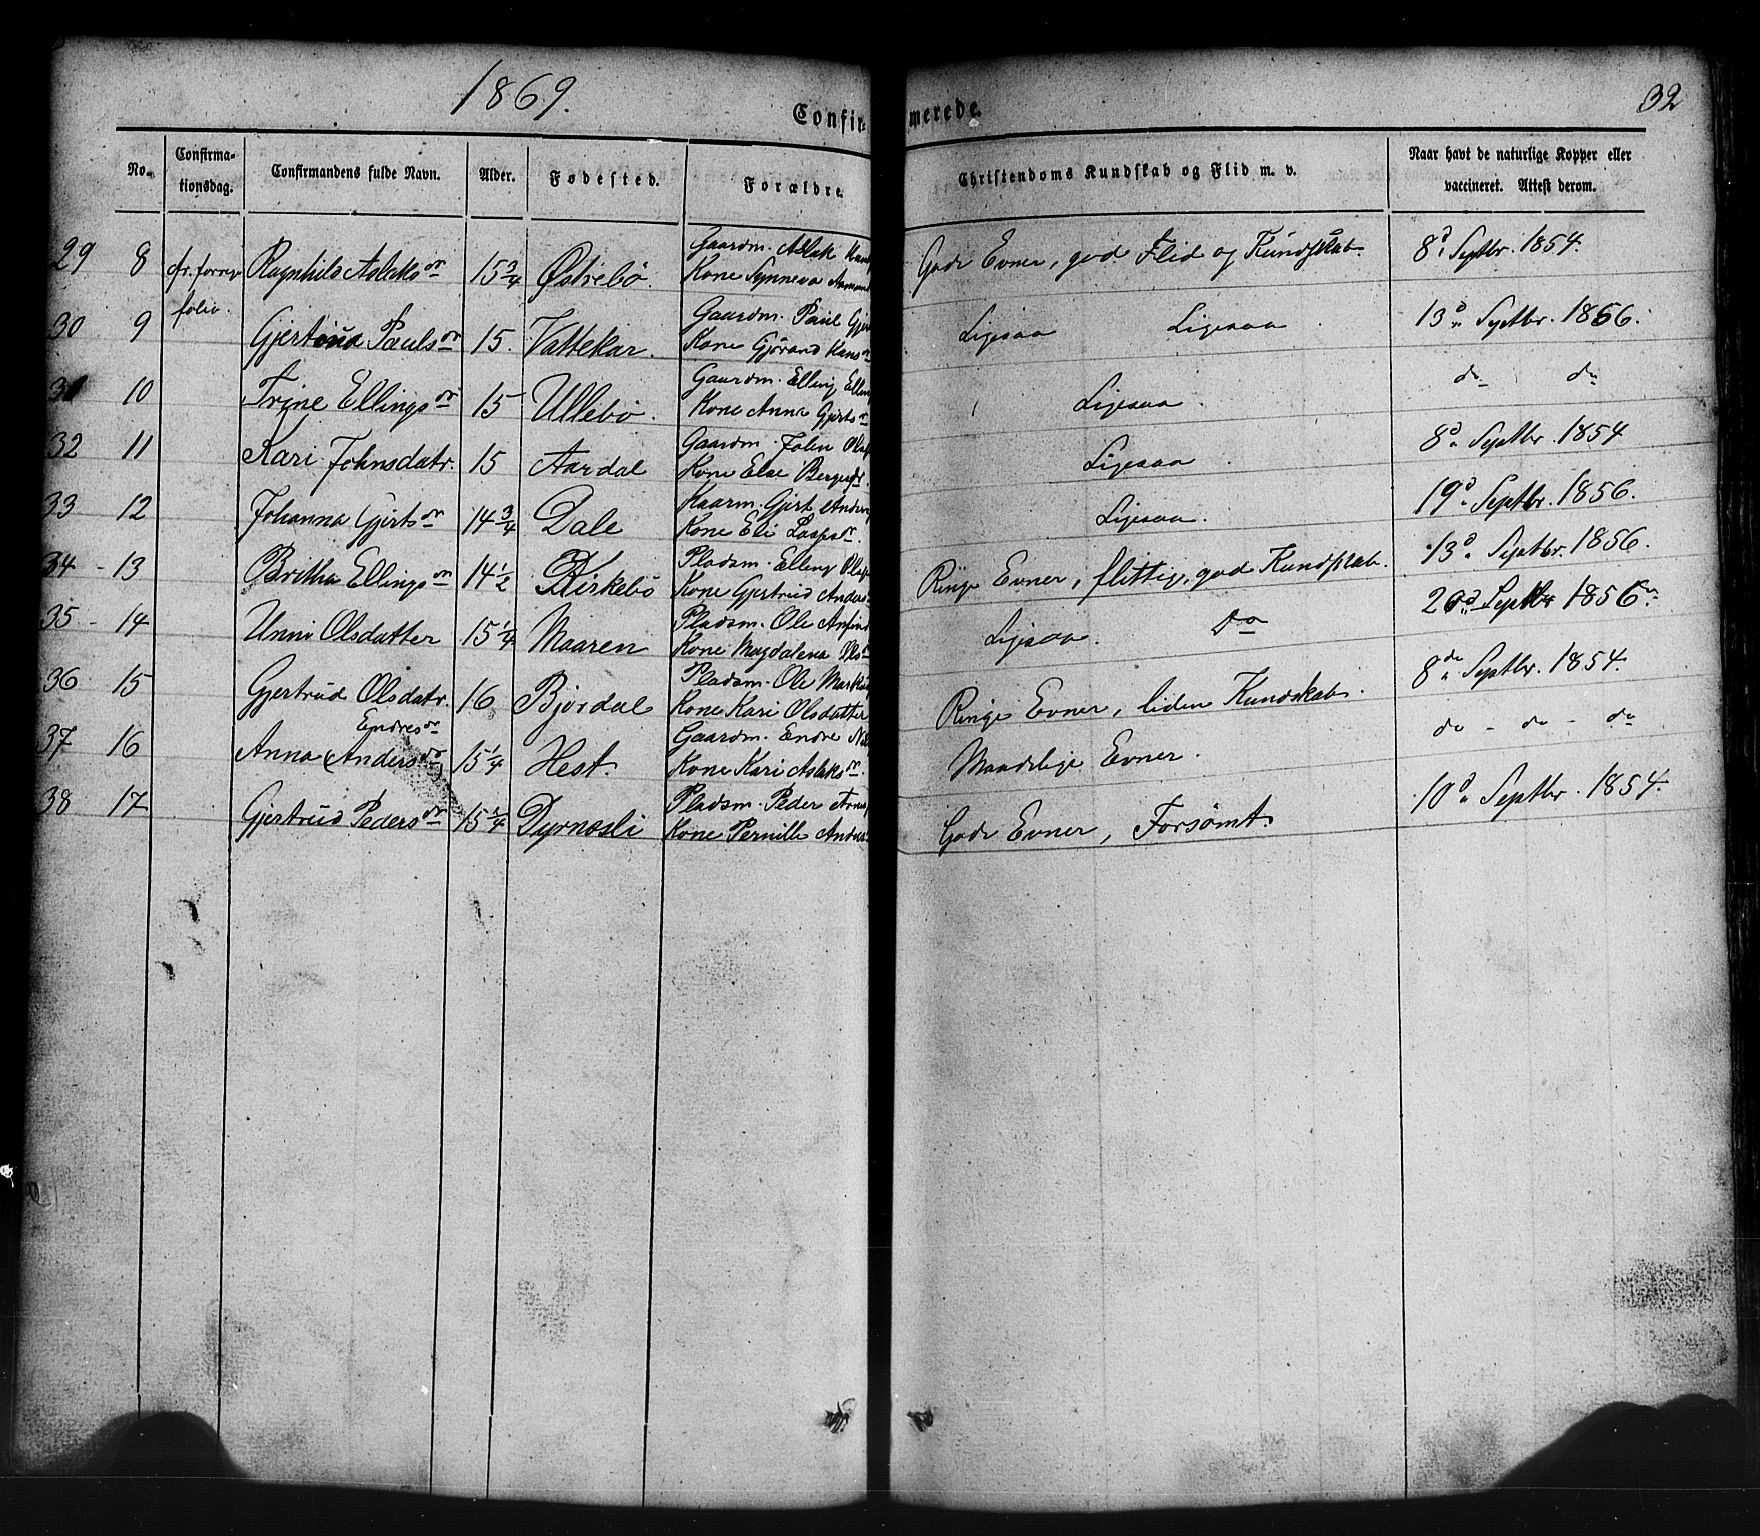 1869.
Confir- merede. 32
No. Confirma-tionsdag. Confirmandens fulde Navn. Alder. Fødested. Forældre. Christendoms Kundskab og Flid m. v. Naar havt de naturlige Kopper eller vaccineret. Attest derom.
29 8 fr. forrige folio. Ragnhild Aslaksdr 15 3/4 Østrebø. Gaardm. Aslak
Kone Synneva
Gode Evner, god Flid og Kundskab. 8d Septbr. 1854.
30 9 Gjertrud Paulsdr 15. Vattekar. Gaardm. Paul
Kone Gjørand Hansdr
Ligesaa Ligesaa 13d Septbr. 1856.
31 10 Trine Ellingsdr 15 Ullebø. Gaardm. Elling
Kone Anna Gjertsdr
Ligesaa. do do
32 11 Kari Johnsdatr. 15 Aardal Gaardm. John
Kone Else
Ligesaa. 8d Septbr. 1854
33 12 Johanna Gjertsdr 14 3/4 Dale Gjert
Kone Eli
Ligesaa. 19d Septbr. 1856.
34 - 13 Britha Ellingsdr 14 1/2 Kirkebø Pladsm. Elling
Kone Gjertrud
Ringe Evner, flittig, god Kundskab. 13d Septbr. 1856.
35 - 14 Unni Olsdatter 15 1/4 Maaren Pladsm. Ole
Kone Magdalena Olsdr
Ligesaa. do 20d Septbr 1856
36 - 15 Gjertrud Olsdatr. 16 Bjordal Pladsm. Ole
Kone Kari Olsdatter
Ringe Evner, liden Kundskab. 8de Septbr. 1854.
37 16 Endresdr
Anna (Andersdr) 15 1/4 Hest. Gaardm. Endre
Kone Kari Aslaksdr.
Maadelige Evner. do - do - do
38 17 Gjertrud Pedersdr 15 1/4 Dyrnesli Pladsm. Peder
Kone Pernille
Gode Evner, Forsømt. 10d Septbr. 1854.